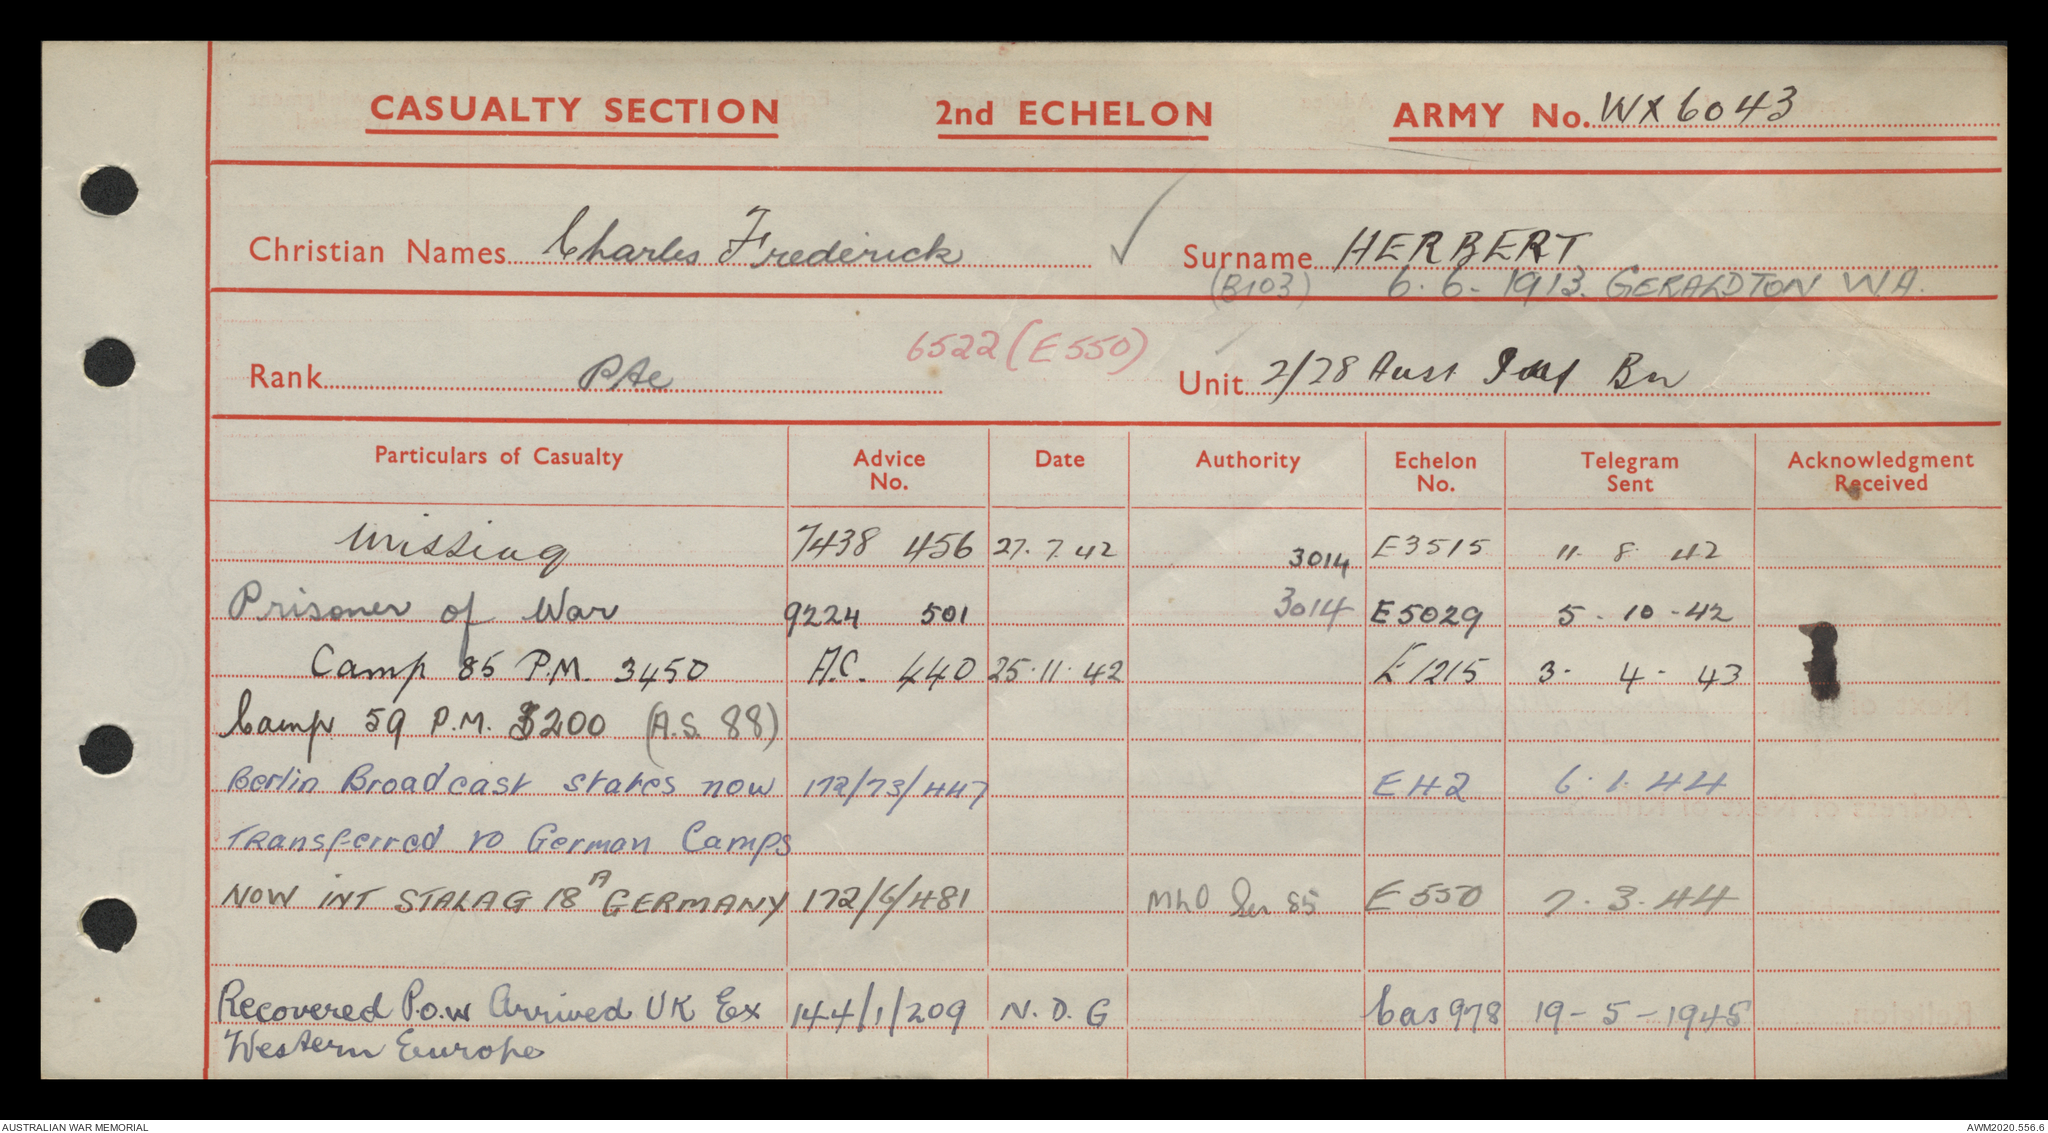 CASUALTY SECTION 2nd ECHELON ARMY No. WX6043
Christian Names Charles Frederick Surname HERBERT
(B103) 6.6.1913. GERALDTON W.A.
6522 (E550)
Rank Pte Unit 2/28 Aust Inf Bn
Particulars of Casualty Advice No. Date Authority Echelon No. Telegram Sent Acknowledgment Received
Missing 7438 456 27.7.42 3014 E3515 11. 8. 42
Prisoner of War 9224 501 3014 E5029 5-10-42
Camp 85 P.M. 3450 A.C. 440 25.11.42 E1215 3- 4- 43
Camp 59 P.M. 3200 (A.S. 88)
Berlin Broadcast states now 172/73/447 E42 6.1.44
Transferred to German Camps
NOW INT STALAG 18A GERMANY 172/6/481 MLO Ser 85 E550 7.3.44
Recovered P.o.w Arrived UK Ex 144/1/209 N.D.G Cas 978 19-5-1945
Western Europe
AUSTRALIAN WAR MEMORIAL AWM2020.556.6